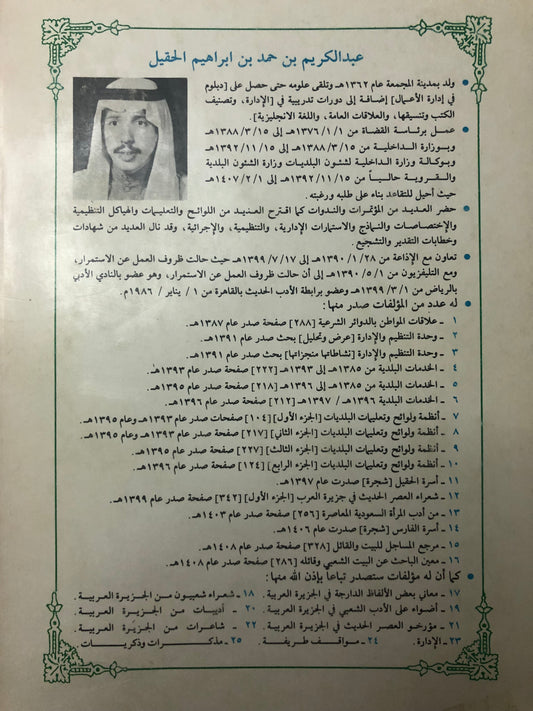 عبدالكريم بن حمد بن ابراهيم الحقيل
● ولد بمدينة المجمعة عام ١٣٦٢هـ وتلقى علومه حتى حصل على [دبلوم
في إدارة الأعمال] إضافة إلى دورات تدريبية في [الإدارة، وتصنيف
الكتب وتنسيقها، والعلاقات العامة، واللغة الانجليزية].
● عمل برئاسة القضاة من ١/١/١٣٧٦هـ إلى ١٣٨٨/٣/١٥هـ
وبوزارة الداخلية من ١٣٨٨/٣/١٥هـ إلى ١٣٩٢/١١/١٥هـ
وبوكالة وزارة الداخلية لشئون البلديات وزارة الشئون البلدية
والقروية حالياً من ١٣٩٢/١١/١٥هـ إلى ١٤٠٧/٢/١هـ
حيث أحيل للتقاعد بناء على طلبه ورغبته.
● حضر العديد من المؤتمرات والندوات كما اقترح العديد من اللوائح والتعليمات والهياكل التنظيمية
والإختصاصات والنماذج والاستمارات الإدارية، والتنظيمية، والإجرائية، وقد نال العديد من شهادات
وخطابات التقدير والتشجيع.
● تعاون مع الإذاعة من ١٣٩٠/١/٢٨هـ إلى ١٣٩٩/٧/١٧هـ حيث حالت ظروف العمل عن الاستمرار،
ومع التليفزيون من ١٣٩٠/٥/١هـ إلى أن حالت ظروف العمل عن الاستمرار، وهو عضو بالنادي الأدبي
بالرياض من ١٣٩٩/٣/١هـ وعضو برابطة الأدب الحديث بالقاهرة من ١ / يناير / ١٩٨٦م.
● له عدد من المؤلفات صدر منها:
١ ـ علاقات المواطن بالدوائر الشرعية [٢٨٨] صفحة صدر عام ١٣٨٧هـ.
٢ ـ وحدة التنظيم والإدارة [عرض وتحليل] بحث صدر عام ١٣٩١هـ.
٣ ـ وحدة التنظيم والإدارة [نشاطاتها منجزاتها] بحث صدر عام ١٣٩١هـ.
٤ ـ الخدمات البلدية من ١٣٨٥هـ إلى ١٣٩٣هـ [٢٢٢] صفحة صدر عام ١٣٩٣هـ.
٥ ـ الخدمات البلدية من ١٣٨٥هـ إلى ١٣٩٦هـ [٢١٨] صفحة صدر عام ١٣٩٥هـ.
٦ ـ الخدمات البلدية ١٣٩٦هـ / ١٣٩٧هـ [٢١٢] صفحة صدر عام ١٣٩٦هـ.
٧ ـ أنظمة ولوائح وتعليمات البلديات [الجزء الأول] [١٠٤] صفحات صدر عام ١٣٩٣هـ وعام ١٣٩٥هـ.
٨ ـ أنظمة ولوائح وتعليمات البلديات [الجزء الثاني] [٢١٧] صفحة صدر عام ١٣٩٣هـ وعام ١٣٩٥هـ.
٩ ـ أنظمة ولوائح وتعليمات البلديات [الجزء الثالث] [٢٢٧] صفحة صدر عام ١٣٩٥هـ.
١٠ ـ أنظمة ولوائح وتعليمات البلديات [الجزء الرابع] [١٢٤] صفحة صدر عام ١٣٩٦هـ.
١١ ـ أسرة الحقيل [شجرة] صدرت عام ١٣٩٧هـ.
١٢ ـ شعراء العصر الحديث في جزيرة العرب [الجزء الأول] [٣٤٢] صفحة صدر عام ١٣٩٩هـ.
١٣ ـ من أدب المرأة السعودية المعاصرة [٢٥٦] صفحة صدر عام ١٤٠٣هـ.
١٤ ـ أسرة الفارس [شجرة] صدرت عام ١٤٠٦هـ.
١٥ ـ مرجع المساجل للبيت والقائل [٣٢٨] صفحة صدر عام ١٤٠٨هـ.
١٦ ـ معين الباحث عن البيت الشعبي وقائله [٢٨٦] صفحة صدر عام ١٤٠٨هـ.
● كما أن له مؤلفات ستصدر تباعاً بإذن الله منها:
١٧ ـ معاني بعض الألفاظ الدارجة في الجزيرة العربية. ١٨ ـ شعراء شعبيون من الجزيرة العربية.
١٩ ـ أضواء على الأدب الشعبي في الجزيرة العربية. ٢٠ ـ أديبات من الجزيرة العربية.
٢١ ـ مؤرخو العصر الحديث في الجزيرة العربية. ٢٢ ـ شاعرات من الجزيرة العربية.
٢٣ ـ الإدارة. ٢٤ ـ مواقف طريفة. ٢٥ ـ مذكرات وذكريات.